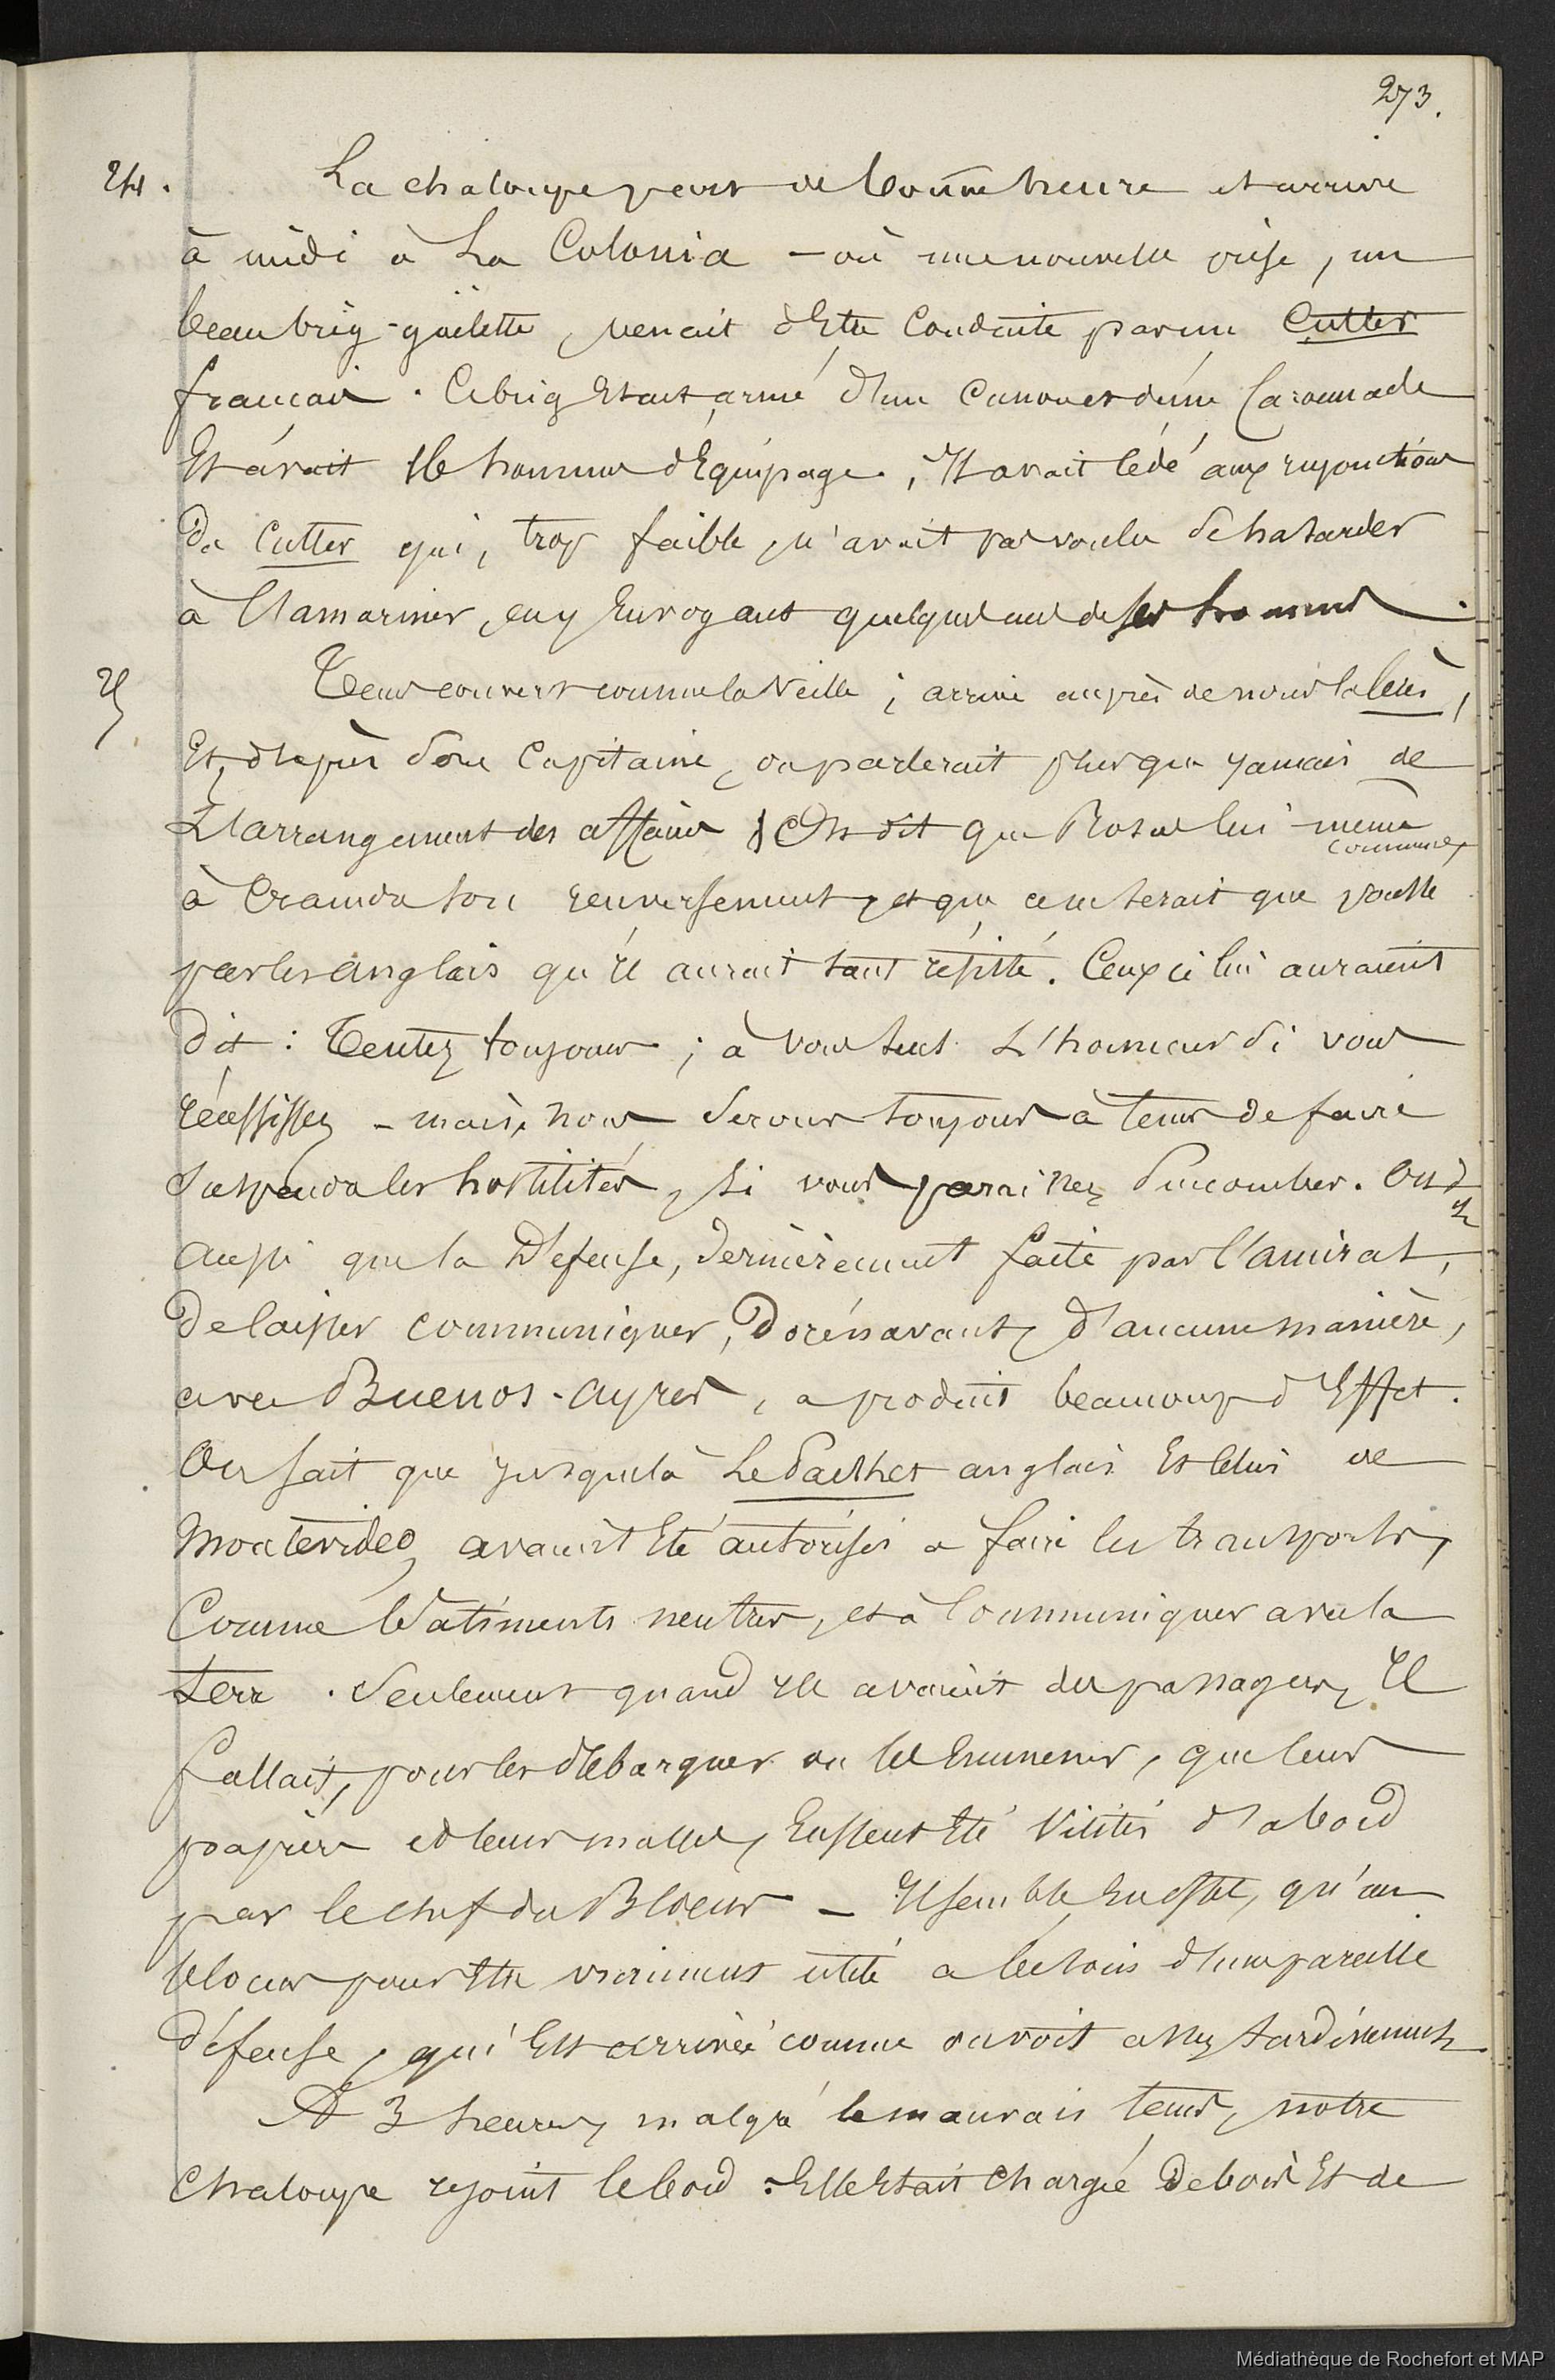 273.
24. La chaloupe part de bonne heure et arrive
à midi à La Colonia - où une nouvelle prise, un
beau brig-goëlette, venait d'Etre Conduite par un Cutter
francais. Ce brig Etait armé d'un Canon et d'une Caronade
Et avait 16 hommes d'Equipage. Il avait cédé aux injonctions
du Cutter qui, trop faible, n'avait pas voulu se hasarder
à l'amariner, en y Envoyant quelques uns de ses hommes.
25. Tems couvert comme la Veille; arrive auprès de nous la Cérès,
Et, d'après son Capitaine, on parlerait plus que jamais de
L'arrangement des affaires. On dit que Rosas lui-même commence
à craindre son renversement, et que ce ne serait que poussé
par les anglais qu'il aurait tant résisté. Ceux ci lui auraient
dit: Tentez toujours; à vous seul L'honneur si vous
réussissez - mais, nous serons toujours à tems de faire
suspendre les hostilités, si vous paraissez succomber. On dit
aussi que la Défense, dernièrement faite par l'amiral,
De laisser communiquer, Dorénavant, d'aucune manière,
avec Buenos-Ayres, a produit beaucoup d'Effet.
On sait que jusque là Le Packet anglais Et celui de
Montevideo, avaient Eté autorisés à faire les transports,
Comme bâtiments neutres, et à Communiquer avec la
terre. Seulement quand ils avaient des passagers, Il
fallait, pour les débarquer ou les Emmener, que leurs
papiers et leurs malles, Eussent Eté Visités d'abord
par le chef du Blocus - Il semble En effet, qu'un
blocus pour Etre vraiment utile a besoin d'une pareille
défense, qui Est arrivée comme on voit assez tardivement.
A 3 heures, malgré le mauvais tems, notre
Chaloupe rejoint le bord: Elle Etait Chargée De bois Et de
Médiathèque de Rochefort et MAP